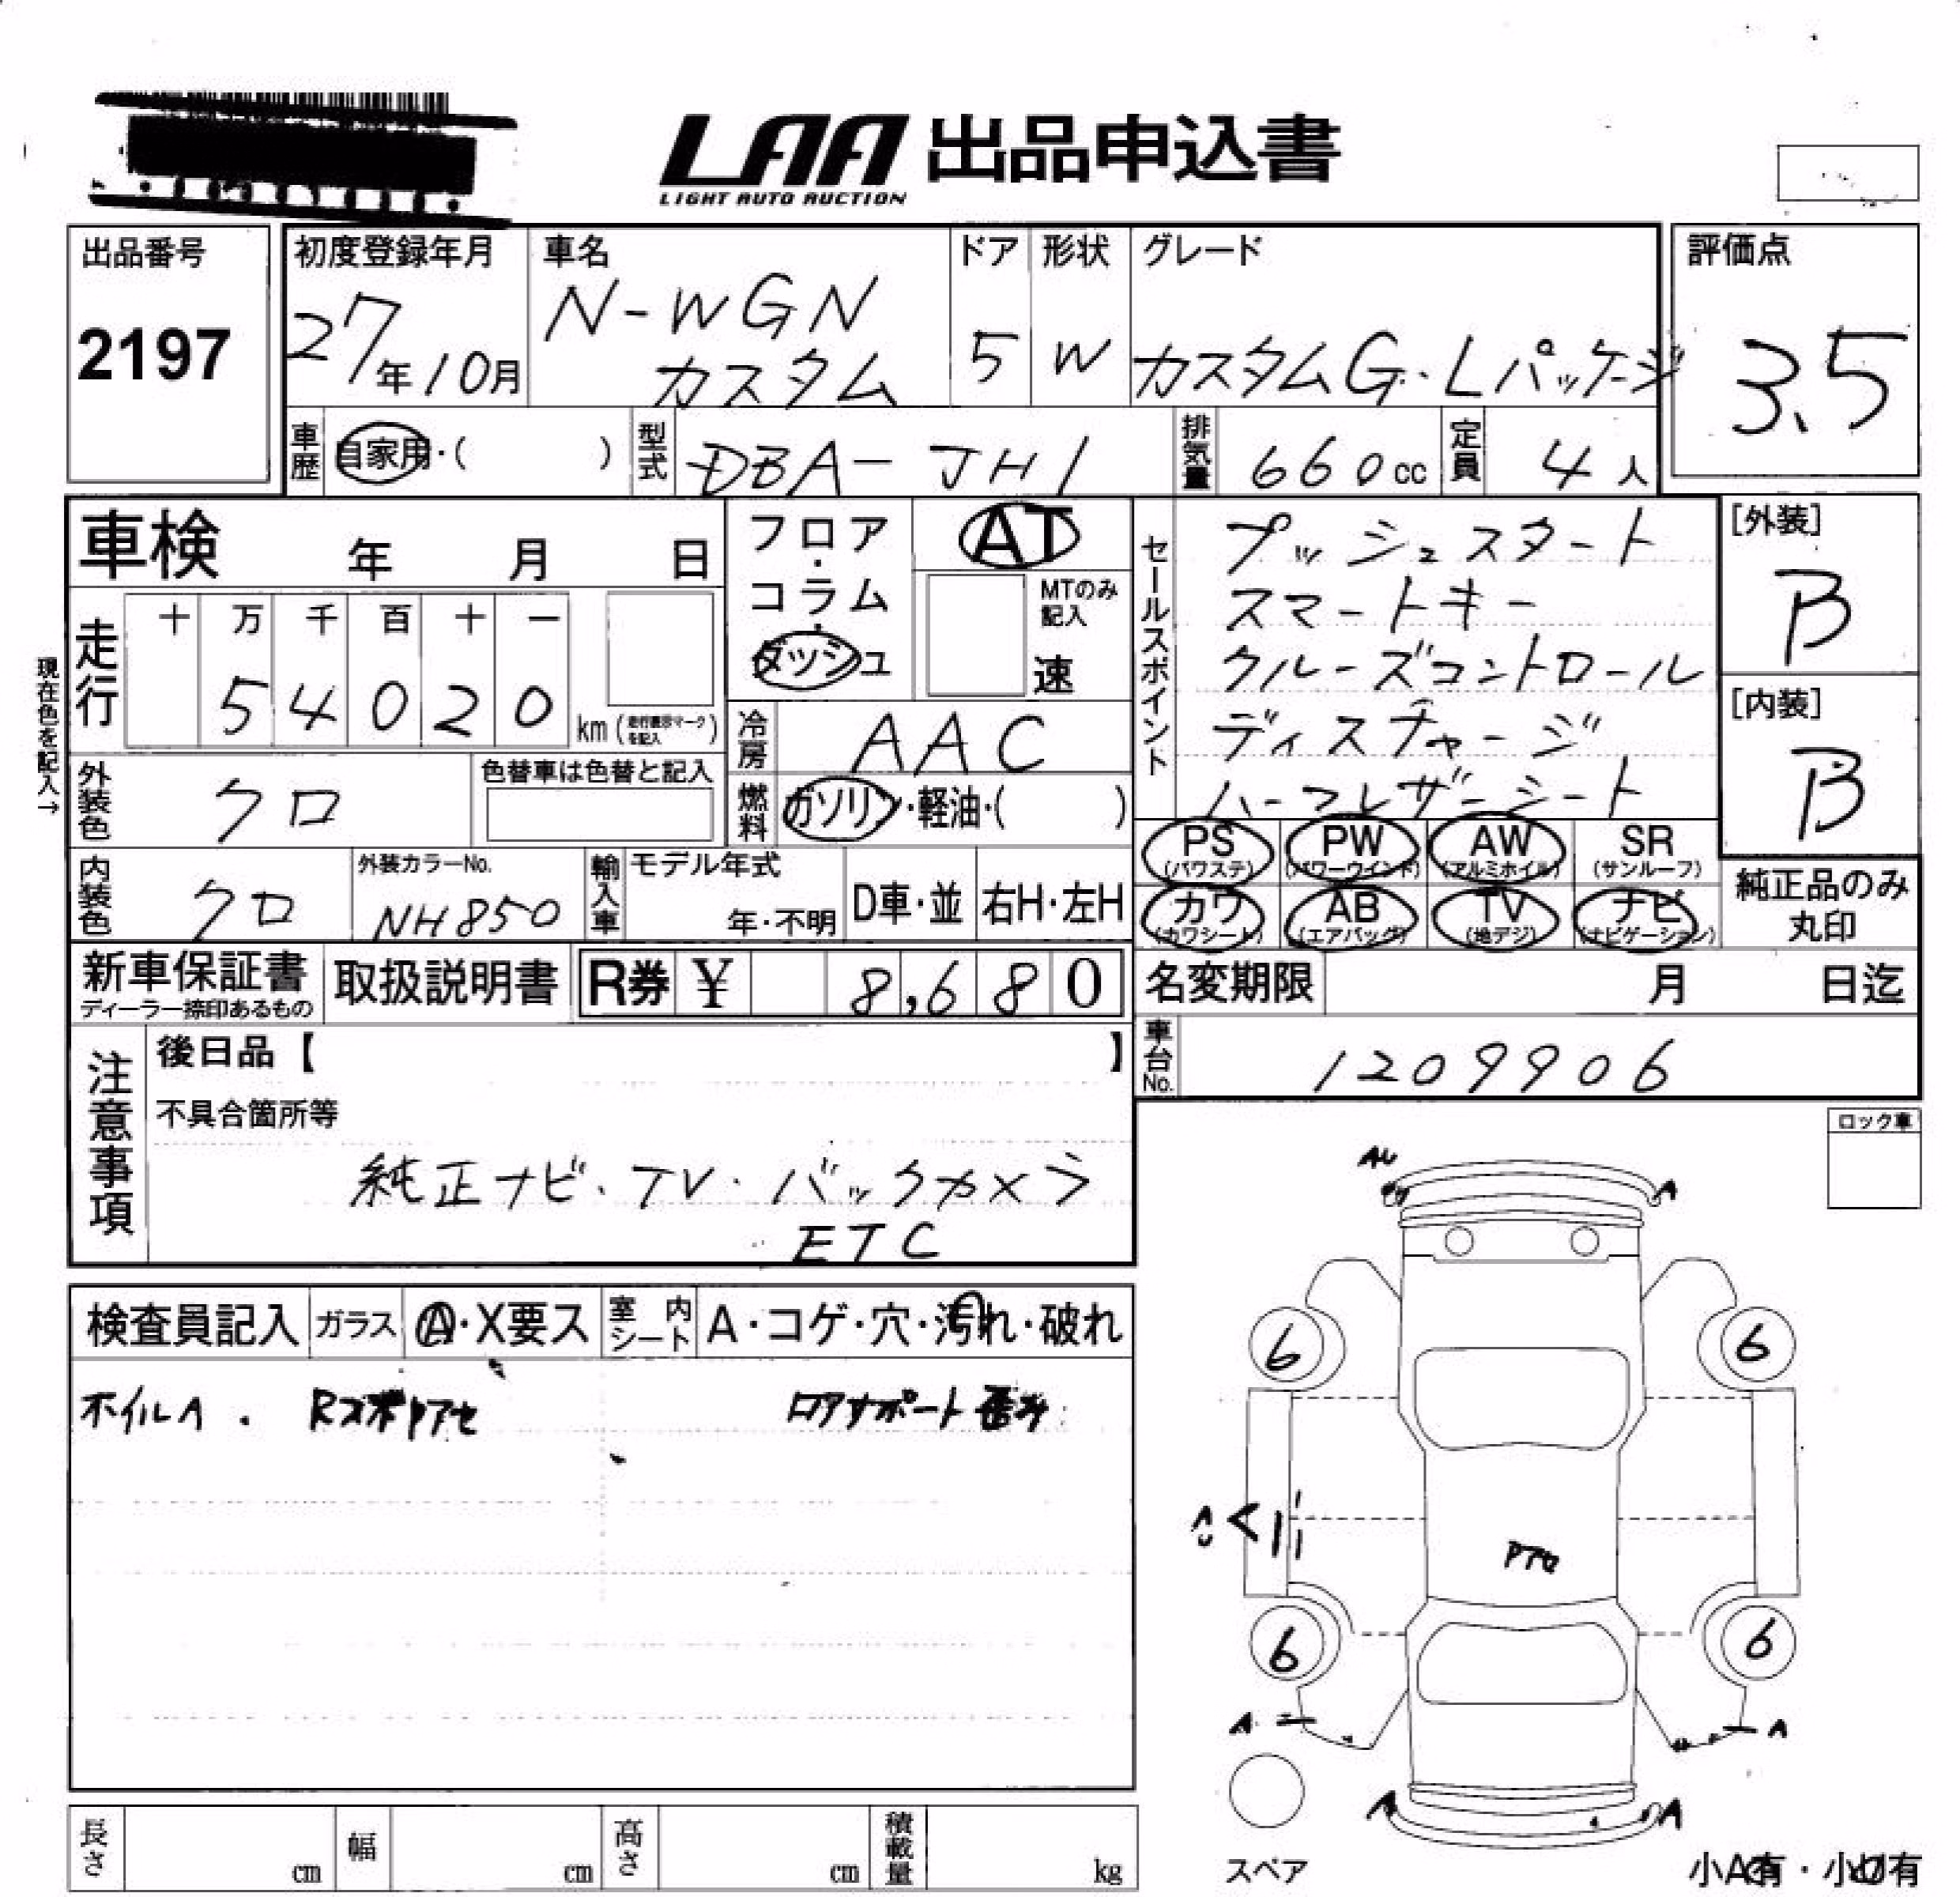 LAA 出品申込書
LIGHT AUTO AUCTION
出品番号
2197
初度登録年月
27年10月
車名
N-WGN
カスタム
ドア
5
形状
W
グレード
カスタムG・Lパッケージ
評価点
3.5
車歴
自家用・( )
型式
DBA-JH1
排気量
660cc
定員
4人
車検 年 月 日
フロア・コラム・ダッシュ
AT
MTのみ記入
速
走行
十 万 千 百 十 一
5 4 0 2 0
km(走行表示マークを記入)
現在色を記入→
冷房
AAC
燃料
ガソリン・軽油・( )
外装色
クロ
色替車は色替と記入
内装色
クロ
外装カラーNo.
NH850
輸入車
モデル年式
年・不明
D車・並
右H・左H
セールスポイント
プッシュスタート
スマートキー
クルーズコントロール
ディスチャージ
ハーフレザーシート
[外装]
B
[内装]
B
PS (パワステ)
PW (パワーウインド)
AW (アルミホイル)
SR (サンルーフ)
カワ (カワシート)
AB (エアバッグ)
TV (地デジ)
ナビ (ナビゲーション)
純正品のみ
丸印
新車保証書
ディーラー捺印あるもの
取扱説明書
R券 ¥ 8,680
名変期限 月 日迄
車台No.
1209906
注意事項
後日品【 】
不具合箇所等
純正ナビ・TV・バックカメラ
ETC
ロック車
検査員記入
ガラス
A・X要ス
室内シート
A・コゲ・穴・汚れ・破れ
ホイルA . Rスポイラアセ ロアサポート
A
A
6
6
A
6
6
A
A
A
A
スペア
小A有・小U有
長さ cm
幅 cm
高さ cm
積載量 kg